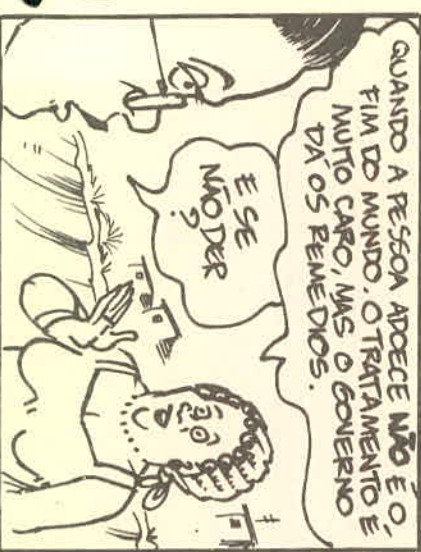 QUANDO A PESSOA ADOECE NÃO É O
FIM DO MUNDO. O TRATAMENTO É
MUITO CARO, MAS O GOVERNO
DÁ OS REMÉDIOS.
E SE
NÃO DER
?